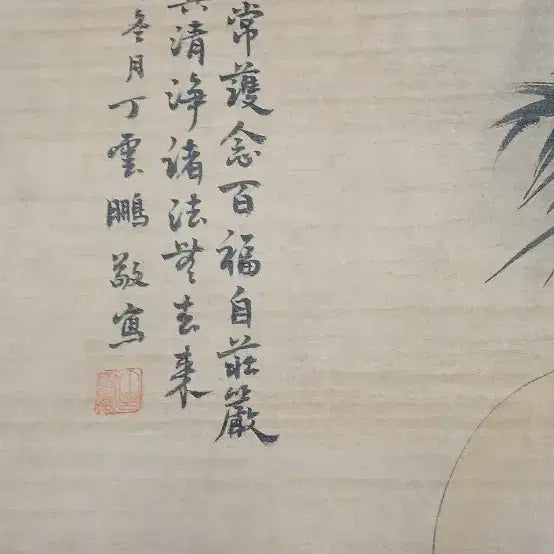 常護念百福自莊嚴
清淨諸法無去來
冬月丁雲鵬敬寫